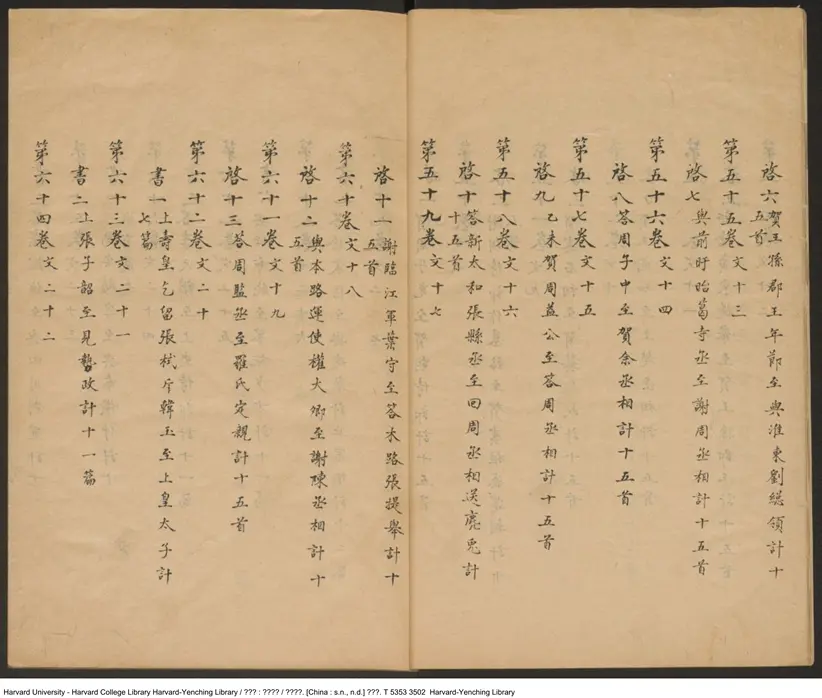 啓六賀王孫郡王年節至與淮東劉總領計十
五首
第五十五卷文十三
啓七與前盱眙葛寺丞至謝周丞相計十五首
第五十六卷文十四
啓八答周子中至賀余丞相計十五首
第五十七卷文十五
啓九乙未賀周益公至答周丞相計十五首
第五十八卷文十六
啓十答新太和張縣丞至回周丞相送鹿兎計
十五首
第五十九卷文十七
啓十一謝臨江軍葉守至答本路張提舉計十
五首
第六十卷文十八
啓十二與本路運使權大卿至謝陳丞相計十
五首
第六十一卷文十九
啓十三答周監丞至羅氏定親計十五首
第六十二卷文二十
書一上壽皇乞留張栻斥韓玉至上皇太子計
七篇
第六十三卷文二十一
書二上張子韶至見執政計十一篇
第六十四卷文二十二
Harvard University - Harvard College Library Harvard-Yenching Library / ??? : ???? / ????. [China : s.n., n.d.] ???. T 5353 3502 Harvard-Yenching Library